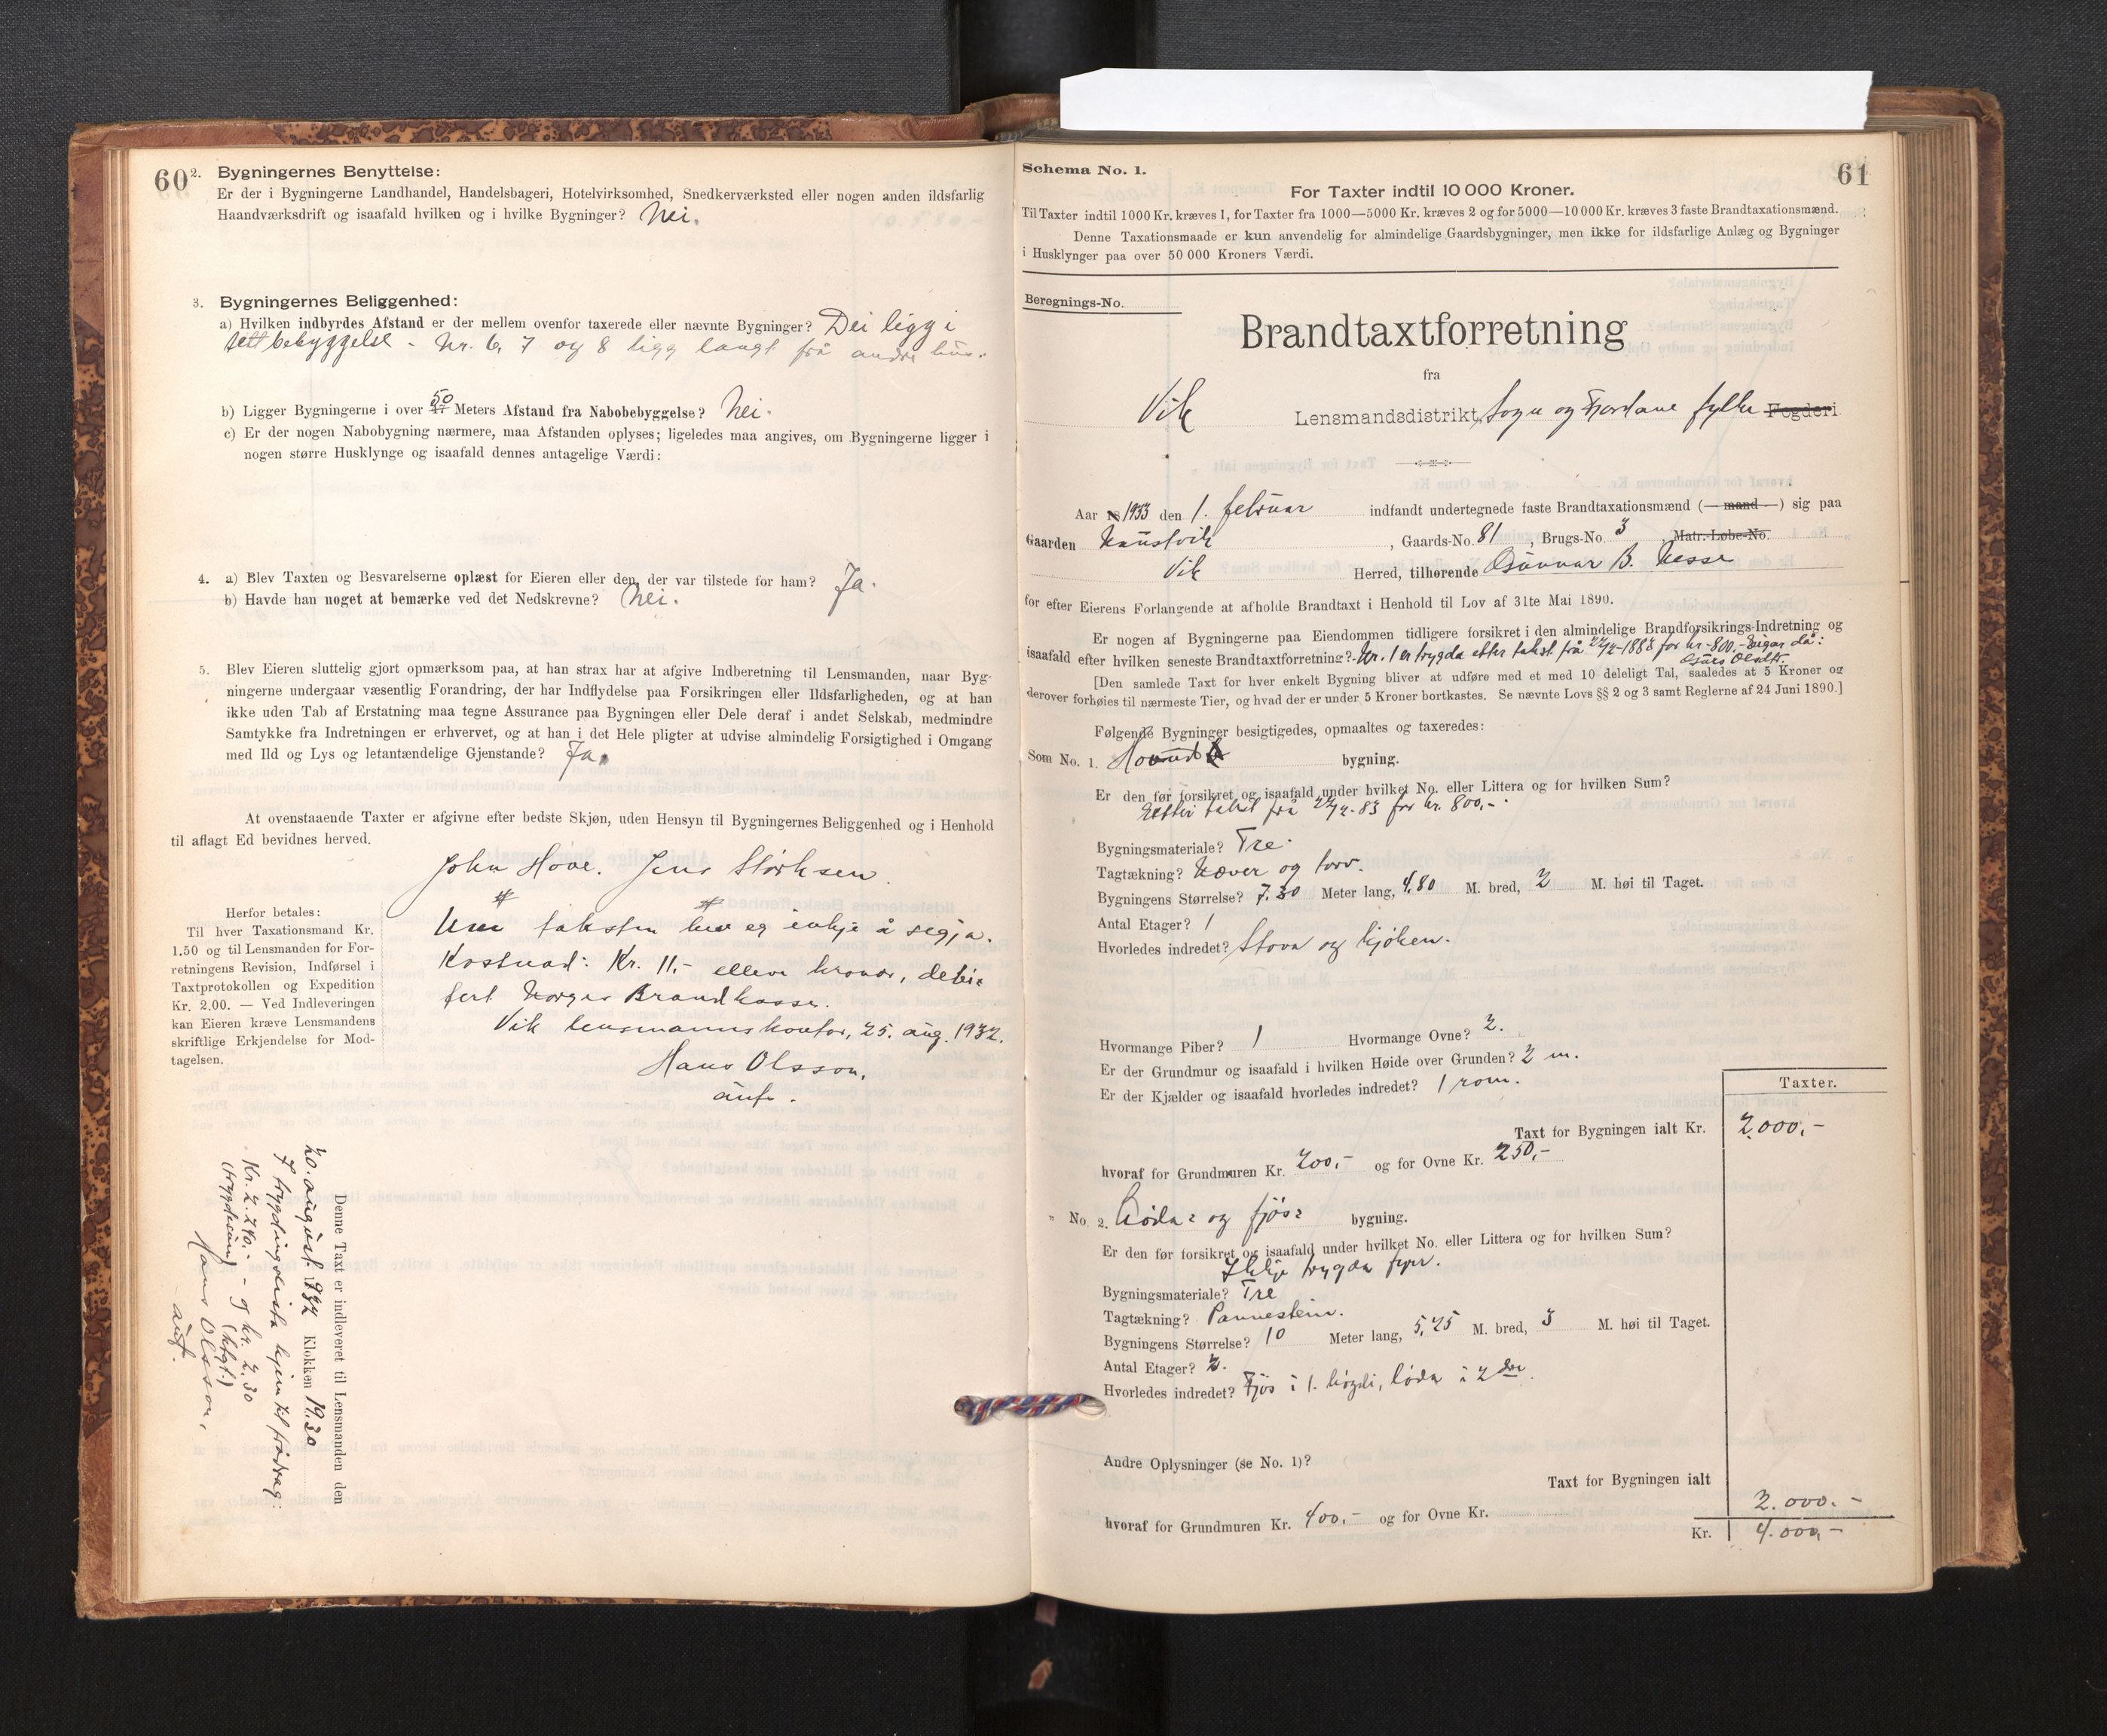 60
2. Bygningernes Benyttelse:
Er der i Bygningerne Landhandel, Handelsbageri, Hotelvirksomhed, Snedkerværksted eller nogen anden ildsfarlig
Haandværksdrift og isaafald hvilken og i hvilke Bygninger? Nei.
3. Bygningernes Beliggenhed:
a) Hvilken indbyrdes Afstand er der mellem ovenfor taxerede eller nævnte Bygninger? Dei ligg i
tett bebyggelse - Nr. 6, 7 og 8 ligg langt frå andre hus.
b) Ligger Bygningerne i over 50 Meters Afstand fra Nabobebyggelse? Nei.
c) Er der nogen Nabobygning nærmere, maa Afstanden oplyses; ligeledes maa angives, om Bygningerne ligger i
nogen større Husklynge og isaafald dennes antagelige Værdi:
4. a) Blev Taxten og Besvarelserne oplæst for Eieren eller den, der var tilstede for ham? Ja.
b) Havde han noget at bemærke ved det Nedskrevne? Nei.
5. Blev Eieren sluttelig gjort opmærksom paa, at han strax har at afgive Indberetning til Lensmanden, naar Byg-
ningerne undergaar væsentlig Forandring, der har Indflydelse paa Forsikringen eller Ildsfarligheden, og at han
ikke uden Tab af Erstatning maa tegne Assurance paa Bygningen eller Dele deraf i andet Selskab, medmindre
Samtykke fra Indretningen er erhvervet, og at han i det Hele pligter at udvise almindelig Forsigtighed i Omgang
med Ild og Lys og letantændelige Gjenstande? Ja.
At ovenstaaende Taxter er afgivne efter bedste Skjøn, uden Hensyn til Bygningernes Beliggenhed og i Henhold
til aflagt Ed bevidnes herved.
John Hove. Jens Størksen.
Herfor betales:
Til hver Taxationsmand Kr.
1.50 og til Lensmanden for For-
retningens Revision, Indførsel i
Taxtprotokollen og Expedition
Kr. 2.00. — Ved Indleveringen
kan Eieren kræve Lensmandens
skriftlige Erkjendelse for Mod-
tagelsen.
Um taksten hev eg inkje å segja.
Kostnad: Kr. 11,- elleve kronor, debi-
tert Norges Brandkasse.
Vik lensmannskontor, 25. aug. 1932.
Hans Olsson,
auf.
Denne Taxt er indleveret til Lensmanden den
20. august 1932 Klokken 19.30
7 trygdingslista hjem til frådrag:
Kr. 2.240.- og kr. 2.30
(trygdesum) - (kotgt.)
Hans Olsson,
auf.
61
Schema No. 1.
For Taxter indtil 10 000 Kroner.
Til Taxter indtil 1000 Kr. kræves 1, for Taxter fra 1000—5000 Kr. kræves 2 og for 5000—10 000 Kr. kræves 3 faste Brandtaxationsmænd.
Denne Taxationsmaade er kun anvendelig for almindelige Gaardsbygninger, men ikke for ildsfarlige Anlæg og Bygninger
i Husklynger paa over 50 000 Kroners Værdi.
Beregnings-No.
Brandtaxtforretning
fra
Vik Lensmandsdistrikt, Sogn og Fjordane fylke Fogderi
Aar 1933 den 1. februar indfandt undertegnede faste Brandtaxationsmænd (—mand—) sig paa
Gaarden Naustvik, Gaards-No. 81, Brugs-No. 3 Matr.-Løbe-No.
Vik Herred, tilhørende Gunnar B. Nesse
for efter Eierens Forlangende at afholde Brandtaxt i Henhold til Lov af 31te Mai 1890.
Er nogen af Bygningerne paa Eiendommen tidligere forsikret i den almindelige Brandforsikrings-Indretning og
isaafald efter hvilken seneste Brandtaxtforretning? Nr. 1 er trygda etter takst frå 22/2-1883 for kr. 800.- Eigar då:
Guro Olsdtr.
[Den samlede Taxt for hver enkelt Bygning bliver at udføre med et med 10 deleligt Tal, saaledes at 5 Kroner og
derover forhøies til nærmeste Tier, og hvad der er under 5 Kroner bortkastes. Se nævnte Lovs §§ 2 og 3 samt Reglerne af 24 Juni 1890.]
Følgende Bygninger besigtigedes, opmaaltes og taxeredes:
Som No. 1. Hovud bygning.
Er den før forsikret og isaafald under hvilket No. eller Littera og for hvilken Sum?
Etter takst frå 22/2-83 for kr. 800,-.
Bygningsmateriale? Tre.
Tagtækning? Never og torv.
Bygningens Størrelse? 7.30 Meter lang, 4,80 M. bred, 2 M. høi til Taget.
Antal Etager? 1
Hvorledes indredet? Stova og kjøken.
Hvormange Piber? 1 Hvormange Ovne? 2.
Er der Grundmur og isaafald i hvilken Høide over Grunden? 2 m.
Er der Kjælder og isaafald hvorledes indredet? 1 rom.
Taxter.
Taxt for Bygningen ialt Kr. 2.000,-
hvoraf for Grundmuren Kr. 200,- og for Ovne Kr. 250,-
" No. 2. Løda- og fjøs- bygning.
Er den før forsikret og isaafald under hvilket No. eller Littera og for hvilken Sum?
Ikkje trygda fyrr.
Bygningsmateriale? Tre
Tagtækning? Pannestein.
Bygningens Størrelse? 10 Meter lang, 5,25 M. bred, 3 M. høi til Taget.
Antal Etager? 2.
Hvorledes indredet? Fjøs i 1. høgdi, løda i 2dre.
Andre Oplysninger (se No. 1)?
Taxt for Bygningen ialt 2.000.-
hvoraf for Grundmuren Kr. 400,- og for Ovne Kr.
Kr. 4.000,-